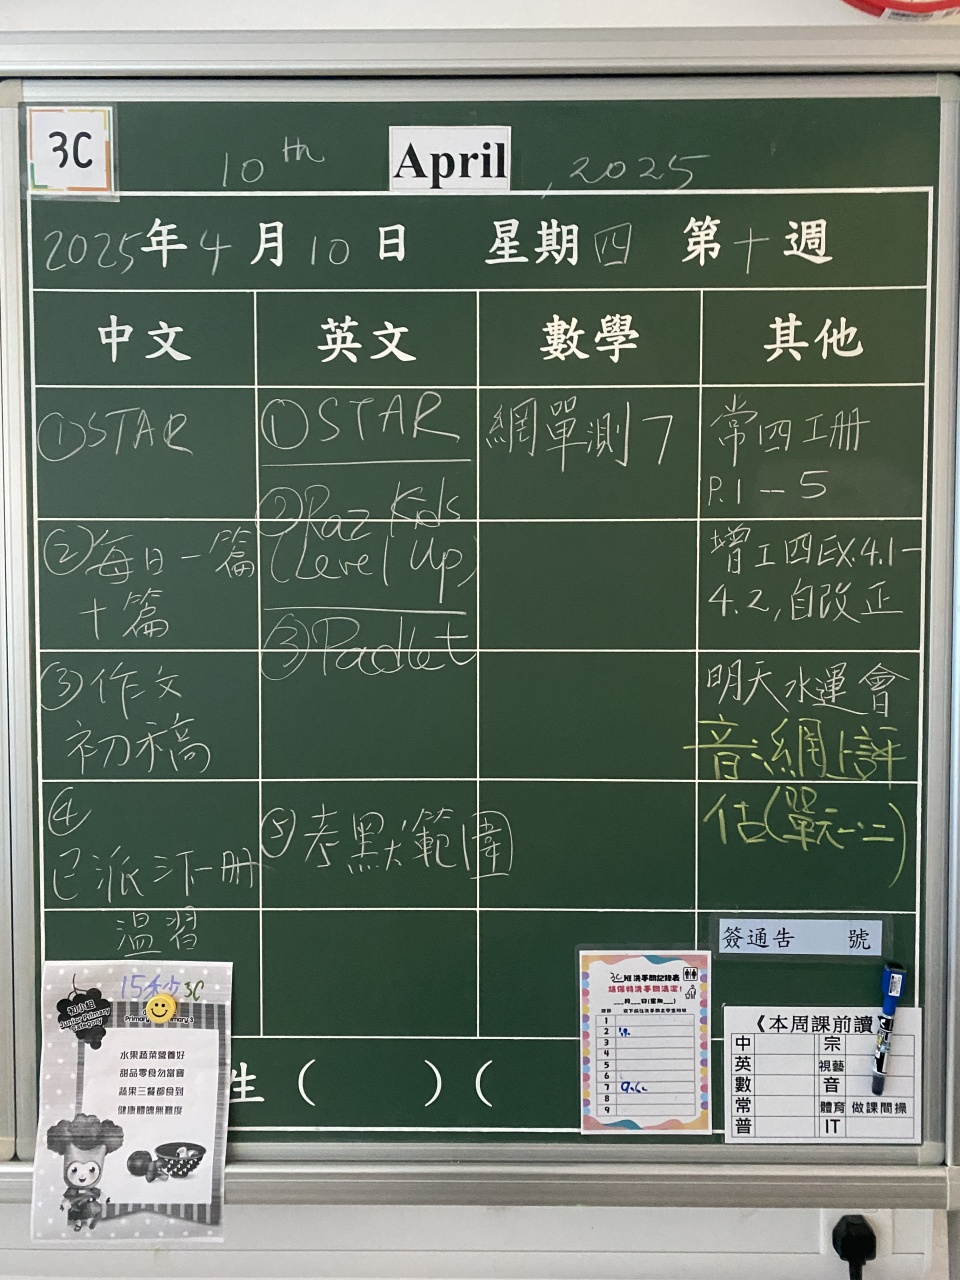 3C
10th April, 2025
2025年4月10日 星期四 第十週
中文 英文 數學 其他
①STAR
②每日一篇
十篇
③作文
初稿
④
已派汴一冊
溫習
①STAR
②Raz Kids
(Level Up)
③Padlet
⑤考默範圍
網單測7
常四工冊
P.1-5
增工四EX.4.1-
4.2,自改正
明天水運會
音:網上評
估(單元一、二)
簽通告 號
生( )(
15秒 3C
初小組
Junior Primary
Category
水果蔬菜營養好
甜品零食勿當寶
蔬果三餐都食到
健康體魄無難度
3C班洗手間記錄表
請保持洗手間清潔!
__月__日(星期__)
1
2
3
4
5
6
7
8
9
《本周課前讀
中 宗
英 視藝
數 音
常 體育 做課間操
普 IT